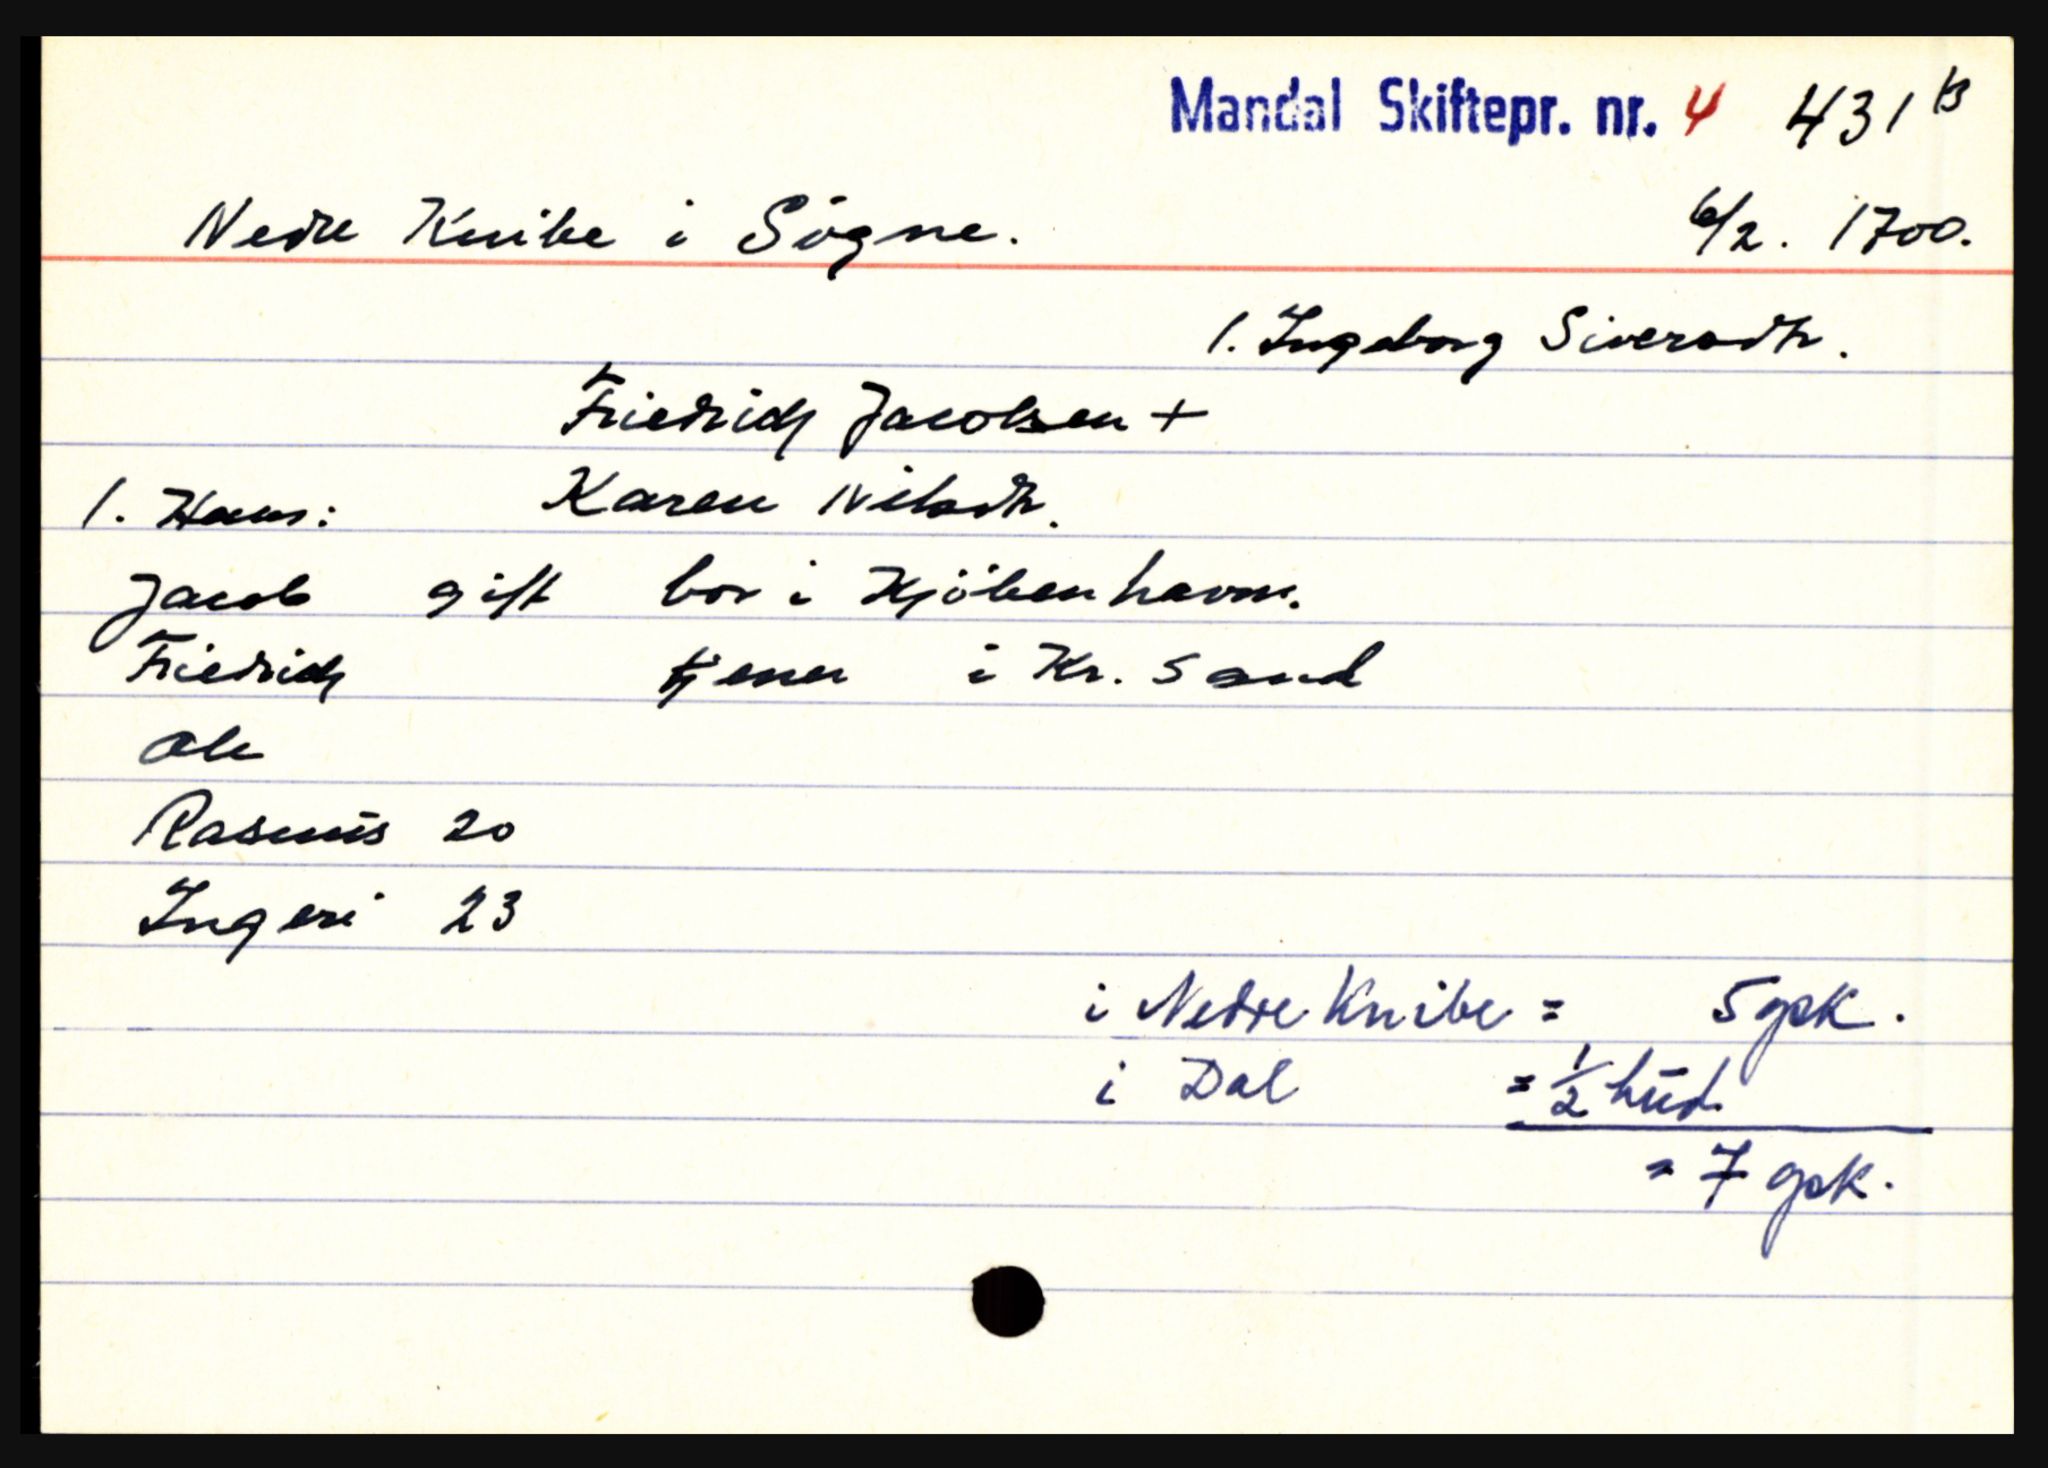 Mandal Skiftepr. nr. 4 431 B
Nedre Knibe i Sögne. 6/2. 1700.
1. Ingeborg Siversdtr.
Friedrich Jacobsen +
1. Hans: Karen Nilsdtr.
Jacob gift bor i Kjöbenhavn.
Friedrich tjener i Kr. sand
Ole
Rasmus 20
Ingeri 23
i Nedre Knibe = 5 gsk.
i Dal = 1/2 hud
= 7 gsk.